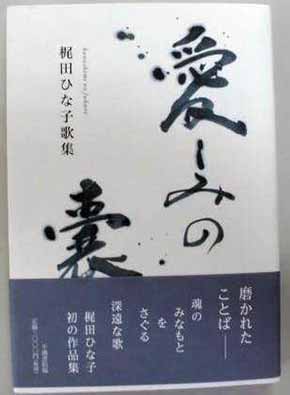 愛しみの
嚢
梶田ひな子歌集
磨かれた
ことば――
魂の
みなもと
を
さぐる
深遠な歌
梶田ひな子
初の作品集